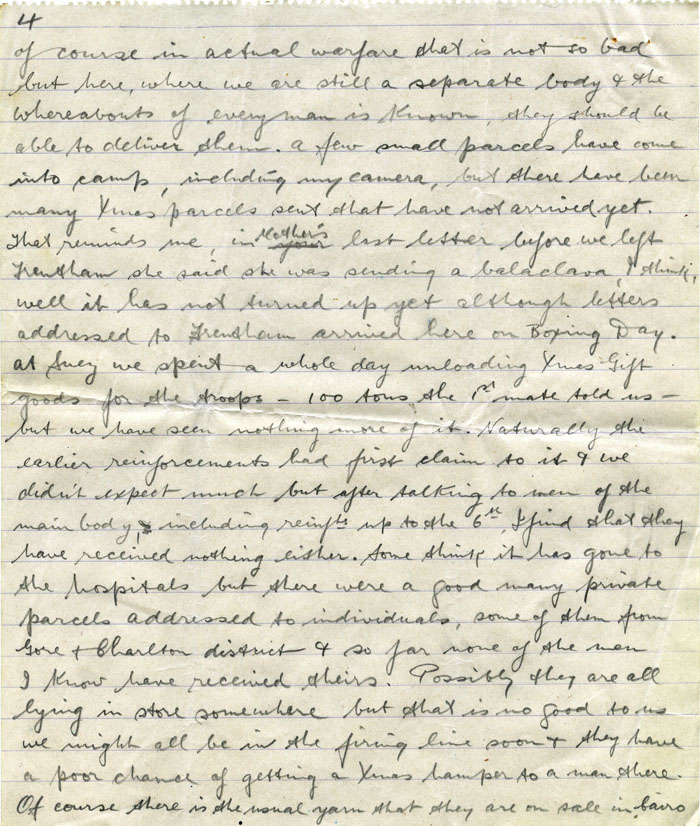 4
of course in actual warfare that is not so bad
but here, where we are still a separate body & the
whereabouts of every man is known, they should be
able to deliver them. A few small parcels have come
into camp, including my camera, but there have been
many Xmas parcels sent that have not arrived yet.
That reminds me, in Mother's last letter before we left
Trentham she said she was sending a balaclava, I think,
well it has not turned up yet although letters
addressed to Trentham arrived here on Boxing Day.
At Suez we spent a whole day unloading Xmas Gift
goods for the troops – 100 tons the 1st mate told us –
but we have seen nothing more of it. Naturally the
earlier reinforcements had first claim to it & we
didn't expect much but after talking to men of the
main body, including reinfts up to the 6th, I find that they
have received nothing either. Some think it has gone to
the hospitals but there were a good many private
parcels addressed to individuals, some of them from
Gore & Charlton district & so far none of the men
I know have received theirs. Possibly they are all
lying in store somewhere but that is no good to us
we might all be in the firing line soon & they have
a poor chance of getting a Xmas hamper to a man there.
Of course there is the usual yarn that they are on sale in Cairo